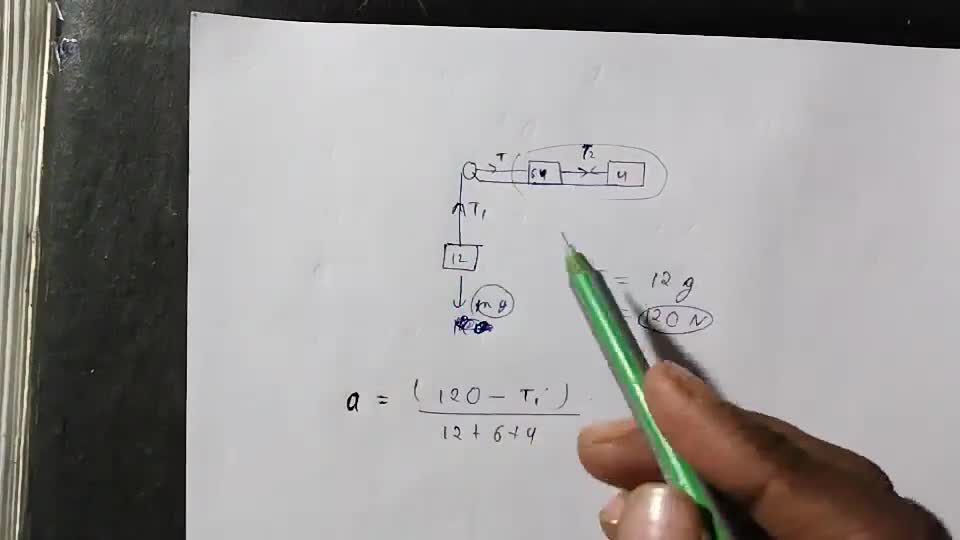 T T2
4
T1
12
mg
= 12 g
= 120 N
a = (120 - T1)
12 + 6 + 4